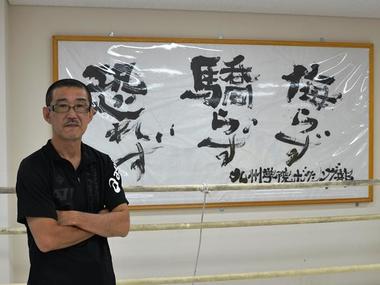 侮らず
驕らず
恐れず
九州学院ボクシング部